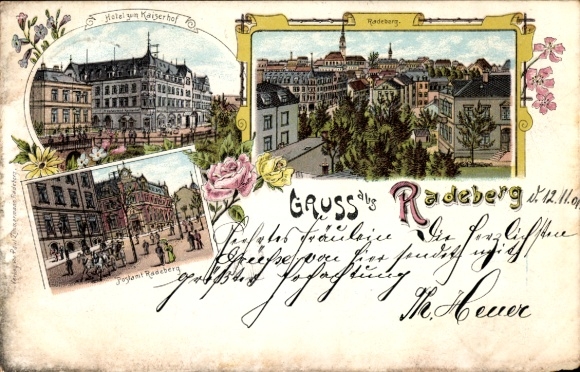 Hotel zum Kaiserhof
Radeberg.
Postamt Radeberg
Gruss aus Radeberg d. 12.11.
Geehrtes Fräulein Die herzlichsten
Grüsse von hier sendet mit
größter Hochachtung
Th. Heuer